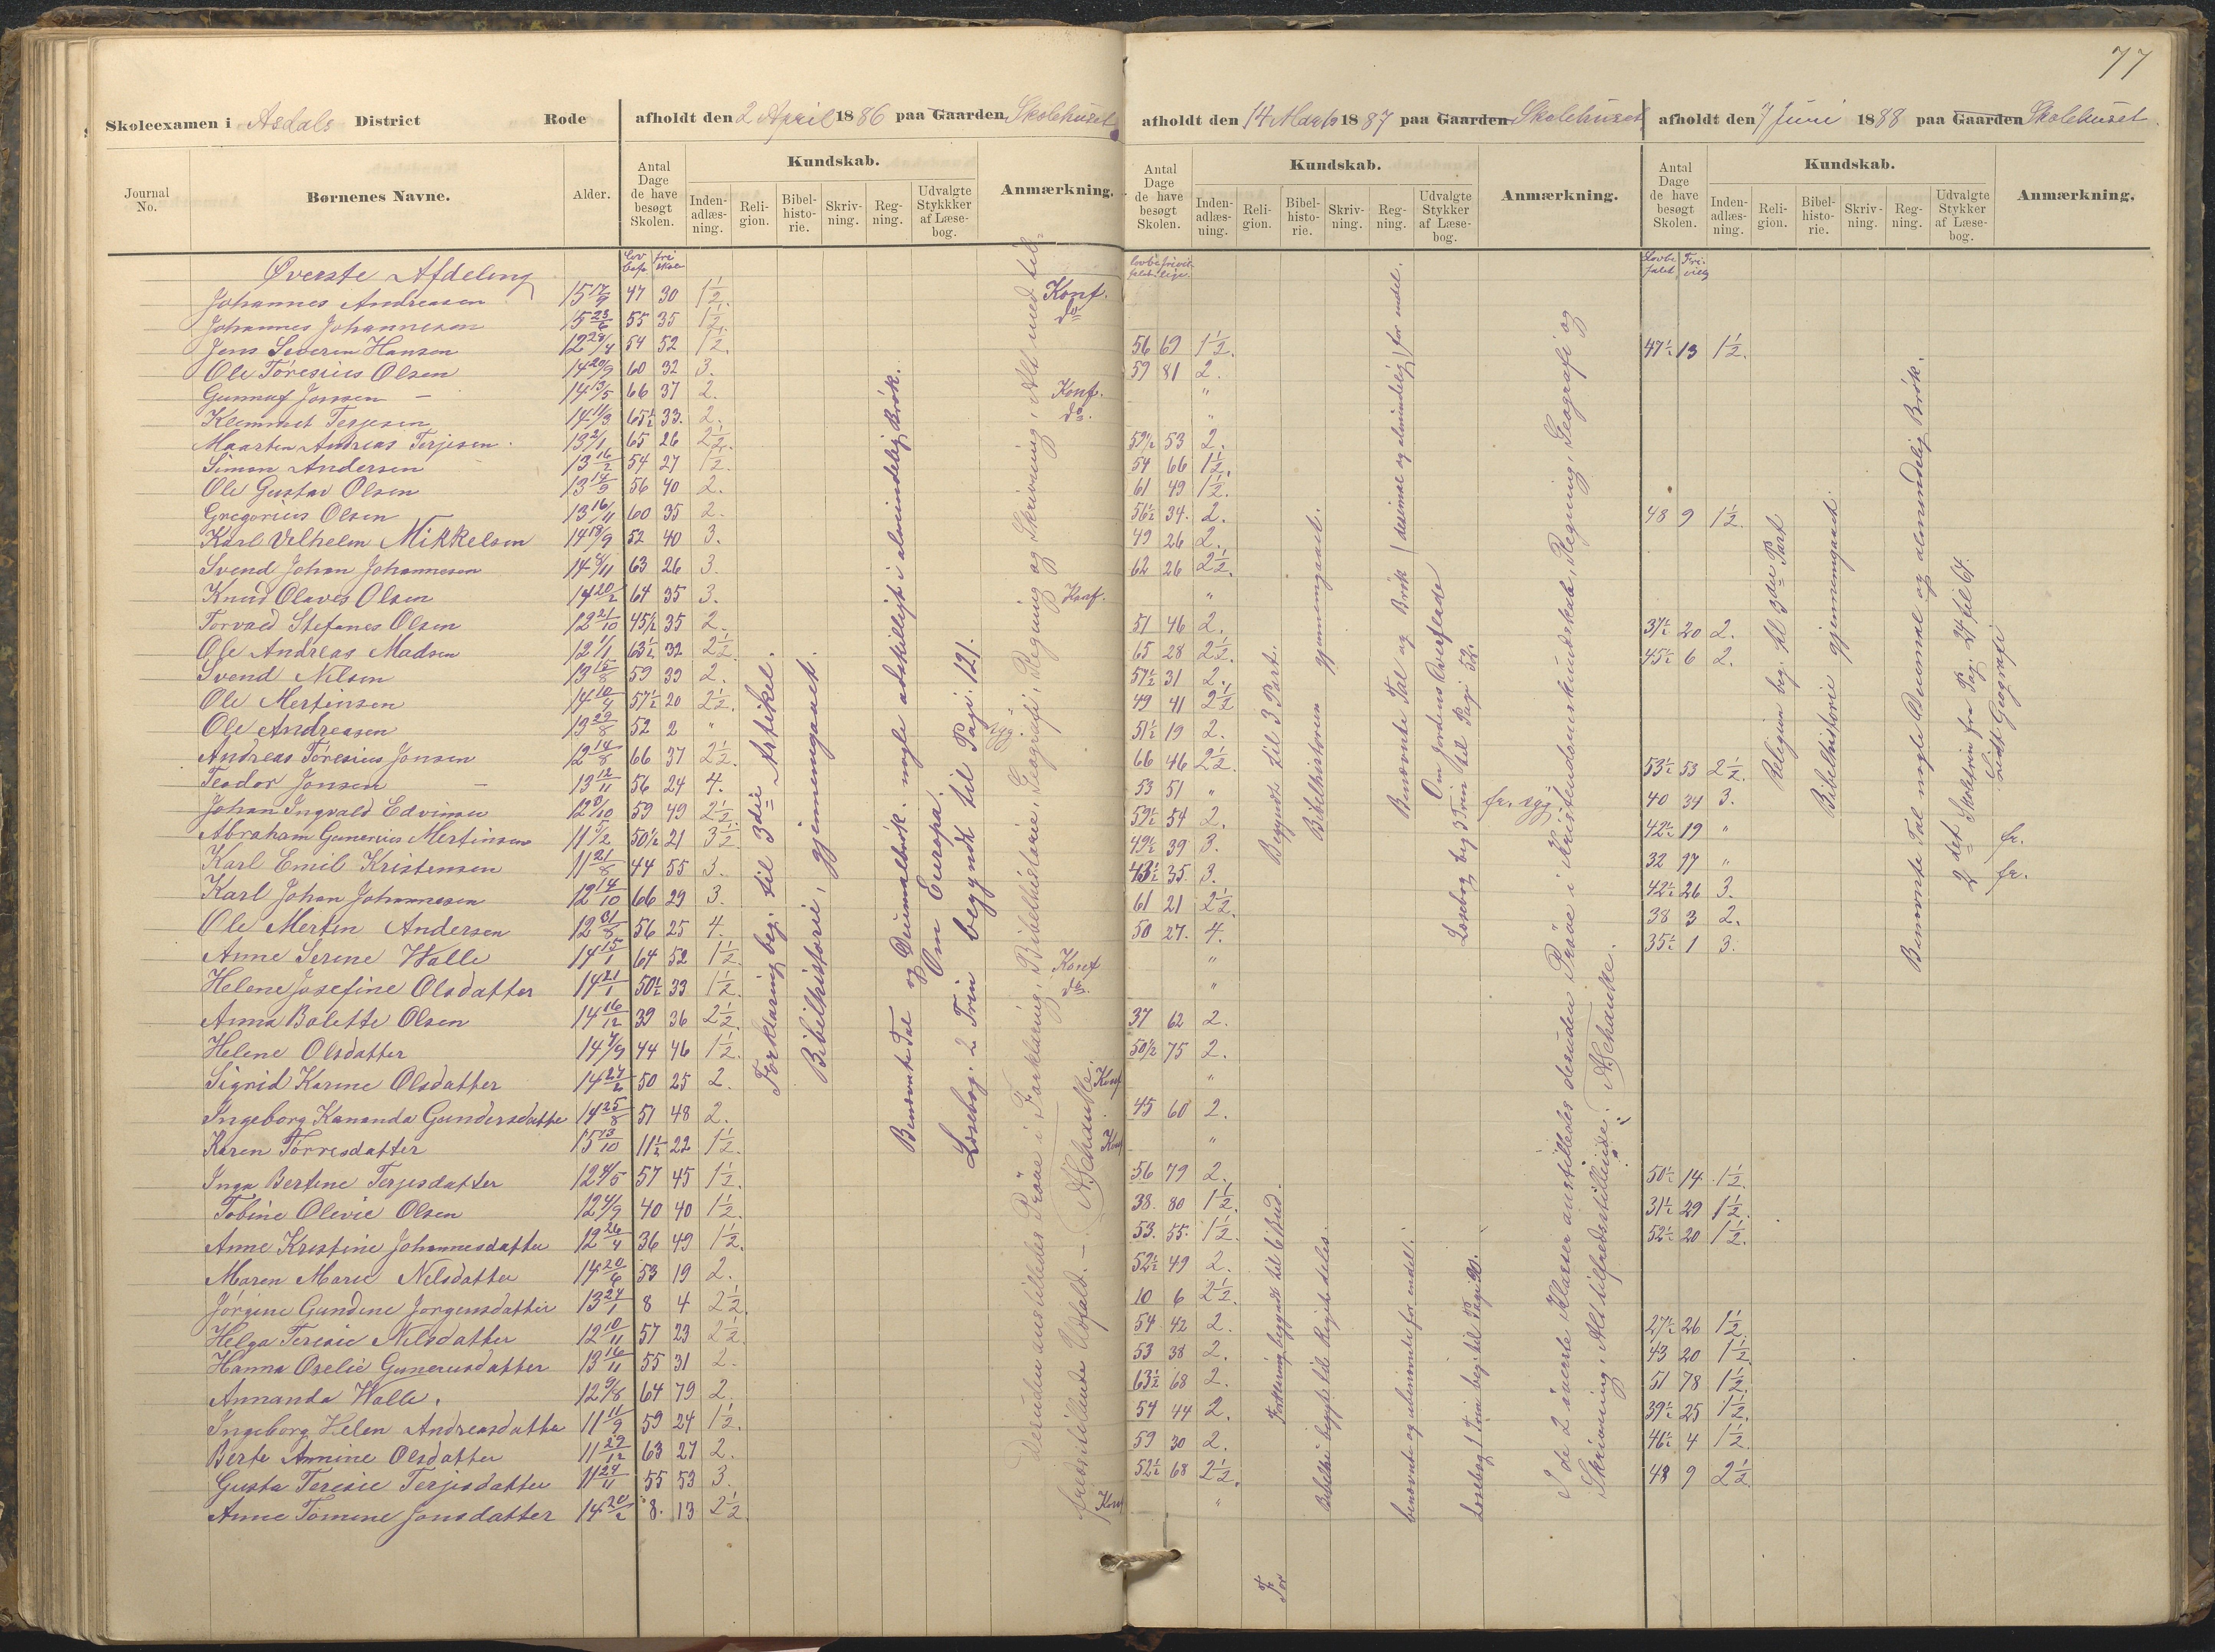 77
Skoleexamen i Asdals District Rode afholdt den 2 April 1886 paa Gaarden Skolehuset
afholdt den 14 Marts 1887 paa Gaarden Skolehuset
afholdt den 7 Juni 1888 paa Gaarden Skolehuset.
Journal No. Børnenes Navne. Alder. Antal Dage de have besøgt Skolen. Kundskab. Indenadlæsning. Religion. Bibelhistorie. Skrivning. Regning. Udvalgte Stykkker af Læsebog. Anmærkning.
Antal Dage de have besøgt Skolen. Kundskab. Indenadlæsning. Religion. Bibelhistorie. Skrivning. Regning. Udvalgte Stykker af Læsebog. Anmærkning.
Antal Dage de have besøgt Skolen. Kundskab. Indenadlæsning. Religion. Bibelhistorie. Skrivning. Regning. Udvalgte Stykker af Læsebog. Anmærkning.
Øverste Afdeling
Johannes Andreasen 15 17/9 47 30 1½. Konf.
Johannes Johannesen 15 23/6 55 35 1½. do
Jens Severin Hansen 12 28/4 54 52 1½. 56 69 1½. 47½ 13 1½.
Ole Töresius Olsen 14 29/9 60 32 3. 59 81 2.
Gunnuf Jonsen 14 13/5 66 37 2. Konf. "
Klemmet Terjesen 14 11/3 65½ 33. 2. do. "
Maarten Andreas Terjesen. 13 2/1 65 26 2½. 59½ 53 2.
Simon Andersen 13 16/2 54 27 1½. 54 66 1½.
Ole Gustav Olsen 13 14/9 56 40 2. 61 49 1½.
Gregorius Olsen 13 16/11 60 35 2. 56½ 34. 2. 48 9 1½.
Karl Vilhelm Mikkelsen 14 18/9 52 40 3. 49 26 2.
Svend Johan Johannesen 14 8/11 63 26 3. 62 26 2½.
Knud Olaves Olsen 14 20/2 64 35 3. Konf. "
Torvald Stefanes Olsen 12 21/10 45½ 35 2. 51 46 2. 37½ 20 2.
Ole Andreas Madsen 12 1/1 63½ 32 2½. 65 28 2½. 45½ 6 2.
Svend Nilsen 13 15/8 59 39 2. 57½ 31 2.
Ole Mertinsen 14 10/4 57½ 20 2½. 49 41 2½
Ole Andreasen 13 29/8 52 2 " syg. 51½ 19 2.
Andreas Töresius Jonsen 12 14/8 66 37 2½. 66 46 2½. 53½ 53 2½.
Teodor Jonsen 13 12/11 56 24 4. 53 51 " fr. syg. 40 34 3.
Johan Ingvald Edvinsen 12 8/10 59 49 2½. 59½ 54 2. 42½ 19 " fr.
Abraham Gunerius Mertinsen 11 3/2 50½ 21 3½. 49½ 39 3. 32 17 " fr.
Karl Emil Kristensen 11 21/8 44 55 3. 43½ 35. 3. 42½ 26 3.
Karl Johan Johannesen 12 14/10 66 29 3. 61 21 2½. 38 3 2.
Ole Mertin Andersen 12 31/8 56 25 4. 50 27. 4. 35½ 1 3.
Anne Serine Walle 14 15/1 64 52 1½. Konf "
Helene Josefine Olsdatter 14 21/1 50½ 33 1½. do. "
Anna Bolette Olsen 14 16/12 39 36 2½. 37 62 2.
Helene Olsdatter 14 7/9 44 46 1½. 50½ 75 2.
Sigrid Karine Olsdatter 14 27/2 50 25 2. Konf "
Ingeborg Kananda Gundersdatter 14 25/8 51 48 2. 45 60 2.
Karen Törresdatter 15 13/10 11½ 22 1½. Konf "
Inga Bertine Terjesdatter 12 4/5 57 45 1½. 56 79 2. 50½ 14. 1½.
Tobine Olevie Olsen 12 4/9 40 40 1½. 38. 80 1½. 31½ 29 1½.
Anne Kristine Johannesdatter 12 26/4 36 49 1½. 53. 55. 1½. 52½ 20 1½.
Maren Marie Nilsdatter 14 20/6 53 19 2. 52½ 49 2.
Jörgine Gundine Jorgensdatter 13 24/1 8 4 2½. 10 6 2½.
Helga Teresie Nilsdatter 12 10/11 57 23 2½. 54 42 2. 27½ 26 1½.
Hanna Oselie Guneriusdatter 13 16/11 55 31 2. 53 38 2. 43 20 1½.
Annanda Walle. 12 9/8 64 79 2. 63½ 68 2. 51 78 1½.
Ingeborg Helen Andreasdatter 11 11/9 59 24 1½. 54 44 2. 39½ 25 1½.
Berte Annine Olsdatter 11 29/12 63 27 2. 59 30 2. 46½ 4 1½.
Gusta Teresie Terjesdatter 11 24/11 55 53 3. 52½ 68 2½. 48 9 2½
Anne Tomine Jonsdatter 14 20/2 8. 13 2½. Konf "
Forklaring beg. til 3die Artikel.
Bibelhistorie, gjennemgaaet.
Benævnte Tal og Desimalbrök. nogle adskilligt i almindelig Brök.
Læsebog. 2 Trin begyndt til Pagi. 121.
Om Europa.
Desuden anstilledes Pröve i Forklaring, Bibelhistorie, Geografi, Regning og Skrivning, Alt med til-
fredsstillende Udfald. — ASchanke.
Begyndt til 3 Part.
Bibelhistorien gjennemgaaet.
Benævnte Tal og Brök (desimal og almindelig) for endel.
Læsebog beg 3 Trin til Pagi 52.
Om Jordens Overflade
Forklaring begyndt til 6 Bud.
benævnte og ubenævnte for endel.
Læsebog 1 Trin beg. til Pagi 90.
For
I de 2 överste Klasser anstilledes desuden Pröve i Kristendomskundskab, Regning, Geografi og
Skrivning, Alt tilfredsstillende. ASchanke.
Religion beg. til 3die Part
Bibelhistorie gjennemgaaet.
Benævnte Tal nogle Desimal og almindelig Brök.
2det Skoletrin fra Pag. 24 til 64.
Lidt Geografi